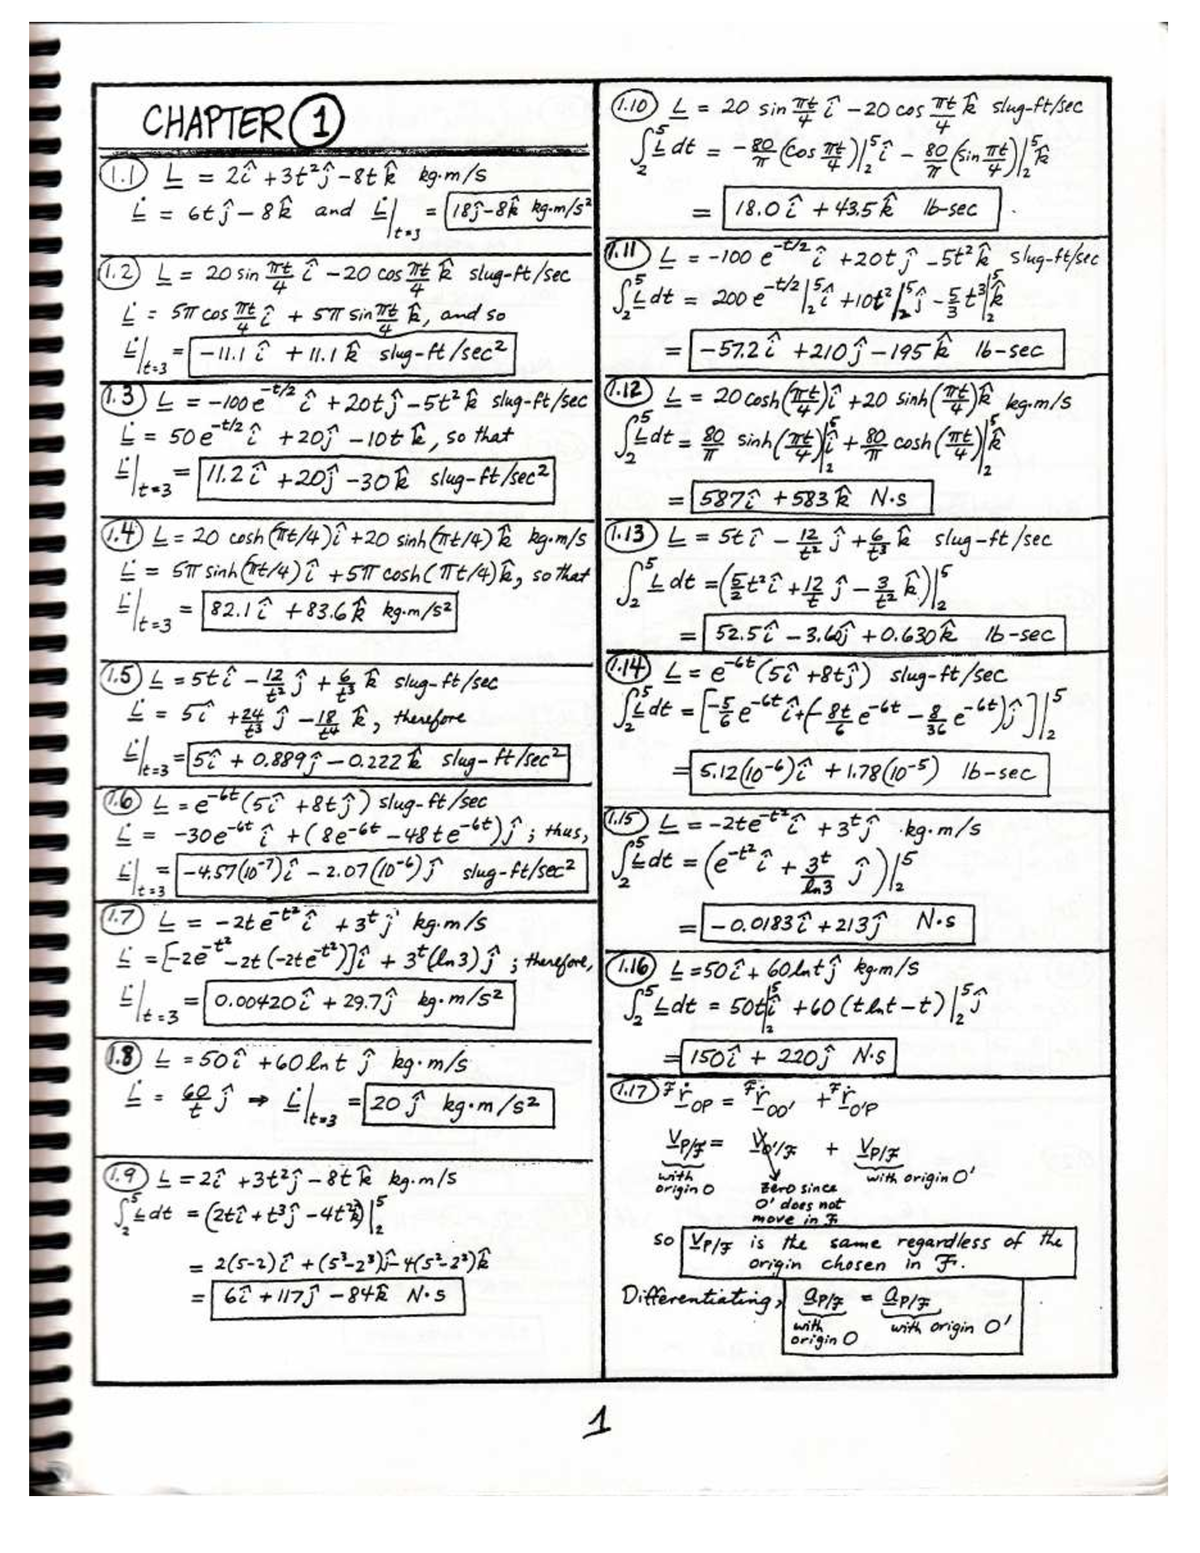 CHAPTER 1
1.1 L = 2î + 3t²ĵ - 8t k̂ kg·m/s
L̇ = 6tĵ - 8k̂ and L̇|t=3 = 18ĵ-8k̂ kg·m/s²
1.2 L = 20 sin πt/4 î - 20 cos πt/4 k̂ slug-ft/sec
L̇ = 5π cos πt/4 î + 5π sin πt/4 k̂, and so
L̇|t=3 = -11.1 î + 11.1 k̂ slug-ft/sec²
1.3 L = -100e^-t/2 î + 20tĵ - 5t² k̂ slug-ft/sec
L̇ = 50e^-t/2 î + 20ĵ - 10t k̂, so that
L̇|t=3 = 11.2î + 20ĵ - 30k̂ slug-ft/sec²
1.4 L = 20 cosh(πt/4)î + 20 sinh(πt/4)k̂ kg·m/s
L̇ = 5π sinh(πt/4)î + 5π cosh(πt/4)k̂, so that
L̇|t=3 = 82.1î + 83.6k̂ kg·m/s²
1.5 L = 5tî - 12/t² ĵ + 6/t³ k̂ slug-ft/sec
L̇ = 5î + 24/t³ ĵ - 18/t⁴ k̂, therefore
L̇|t=3 = 5î + 0.889ĵ - 0.222k̂ slug-ft/sec²
1.6 L = e^-6t (5î + 8tĵ) slug-ft/sec
L̇ = -30e^-6t î + (8e^-6t - 48te^-6t)ĵ ; thus,
L̇|t=3 = -4.57(10⁻⁷)î - 2.07(10⁻⁶)ĵ slug-ft/sec²
1.7 L = -2te^-t² î + 3^t ĵ kg·m/s
L̇ = [-2e^-t² - 2t(-2te^-t²)]î + 3^t(ln3)ĵ ; therefore,
L̇|t=3 = 0.00420î + 29.7ĵ kg·m/s²
1.8 L = 50î + 60 ln t ĵ kg·m/s
L̇ = 60/t ĵ ⇒ L̇|t=3 = 20ĵ kg·m/s²
1.9 L = 2î + 3t²ĵ - 8t k̂ kg·m/s
∫₂⁵ L dt = (2tî + t³ĵ - 4t²k̂)|₂⁵
= 2(5-2)î + (5³-2³)ĵ - 4(5²-2²)k̂
= 6î + 117ĵ - 84k̂ N·s
1.10 L = 20 sin πt/4 î - 20 cos πt/4 k̂ slug-ft/sec
∫₂⁵ L dt = -80/π (cos πt/4)|₂⁵ î - 80/π (sin πt/4)|₂⁵ k̂
= 18.0î + 43.5k̂ lb-sec
1.11 L = -100 e^-t/2 î + 20tĵ - 5t² k̂ slug-ft/sec
∫₂⁵ L dt = 200 e^-t/2|₂⁵ î + 10t²|₂⁵ ĵ - 5/3 t³|₂⁵ k̂
= -57.2î + 210ĵ - 195k̂ lb-sec
1.12 L = 20 cosh(πt/4)î + 20 sinh(πt/4)k̂ kg·m/s
∫₂⁵ L dt = 80/π sinh(πt/4)|₂⁵ î + 80/π cosh(πt/4)|₂⁵ k̂
= 587î + 583k̂ N·s
1.13 L = 5tî - 12/t² ĵ + 6/t³ k̂ slug-ft/sec
∫₂⁵ L dt = (5/2 t²î + 12/t ĵ - 3/t² k̂)|₂⁵
= 52.5î - 3.60ĵ + 0.630k̂ lb-sec
1.14 L = e^-6t (5î + 8tĵ) slug-ft/sec
∫₂⁵ L dt = [-5/6 e^-6t î + (-8t/6 e^-6t - 8/36 e^-6t)ĵ]|₂⁵
= 5.12(10⁻⁶)î + 1.78(10⁻⁵) lb-sec
1.15 L = -2te^-t² î + 3^t ĵ kg·m/s
∫₂⁵ L dt = (e^-t² î + 3^t/ln3 ĵ)|₂⁵
= -0.0183î + 213ĵ N·s
1.16 L = 50î + 60 ln t ĵ kg·m/s
∫₂⁵ L dt = 50t|₂⁵ î + 60(t ln t - t)|₂⁵ ĵ
= 150î + 220ĵ N·s
1.17 ᶠṙ_OP = ᶠṙ_OO' + ᶠṙ_O'P
V_P/F = V_O'/F + V_P/F
with origin O Zero since O' does not move in F with origin O'
so V_P/F is the same regardless of the
origin chosen in F.
Differentiating, a_P/F = a_P/F
with origin O with origin O'
1